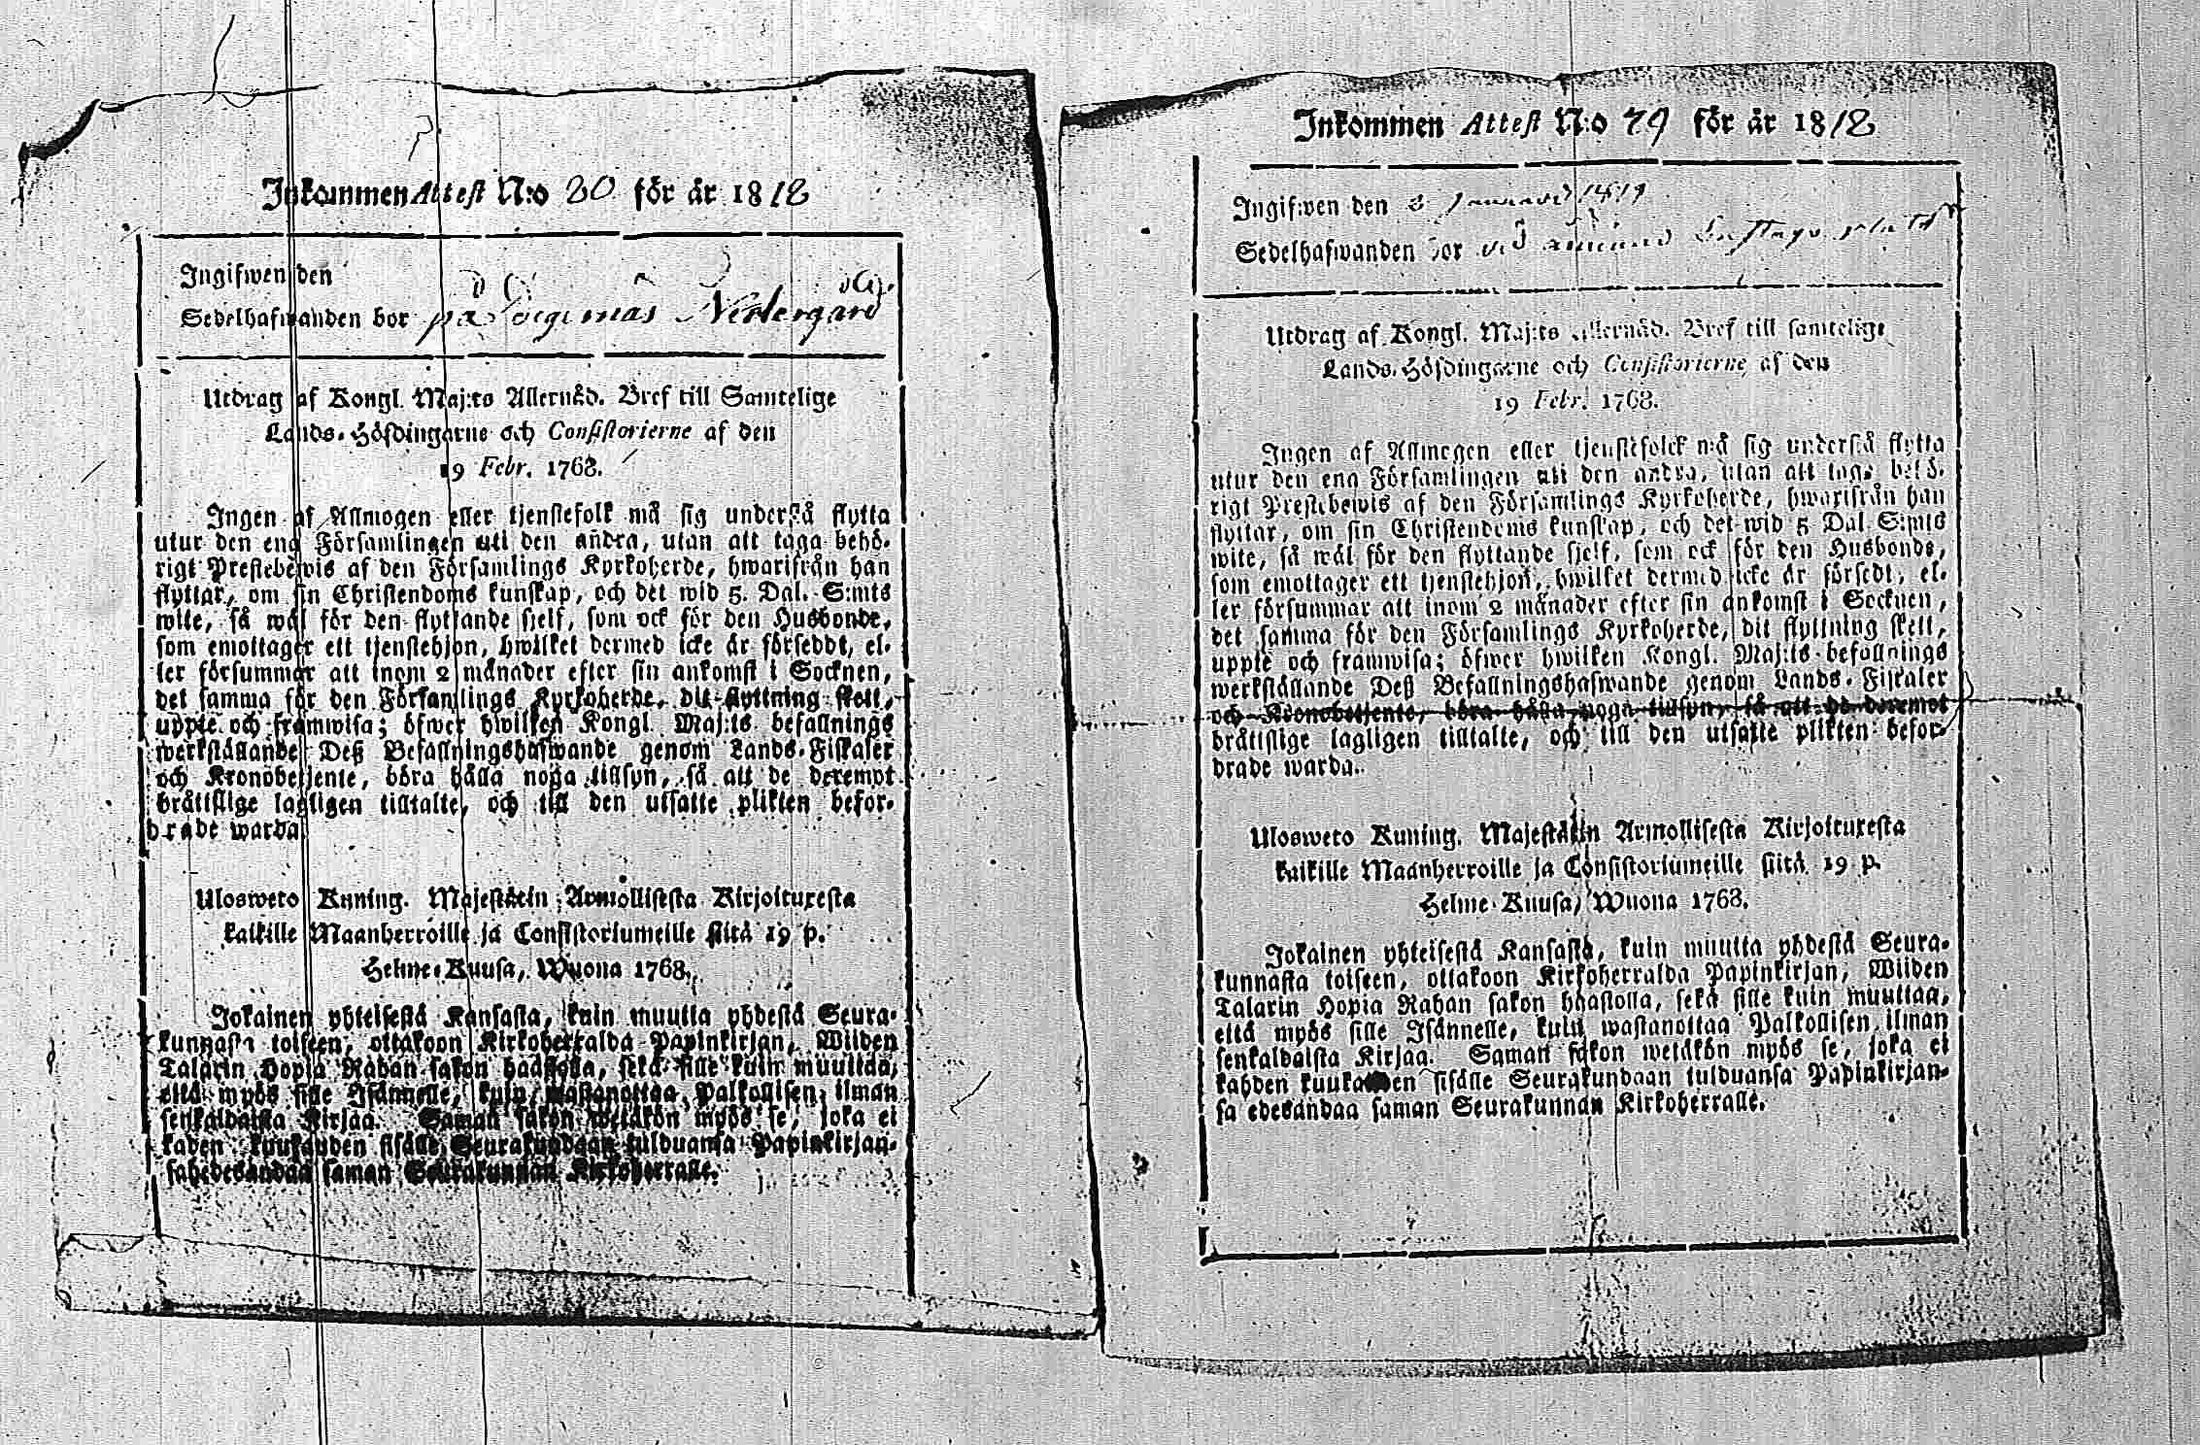 Inkommen Attest N:o 80 för år 1818
Ingifwen den
Sedelhafwanden bor på Nestergård
Utdrag af Kongl. Maj:ts Allernåd. Bref till Samtelige
Lands-Höfdingarne och Consistorierne af den
19 Febr. 1768.
Ingen af Allmogen eller tjenstefolk må sig understå flytta
utur den ena Församlingen uti den andra, utan att taga behö-
rigt Prestebewis af den Församlings Kyrkoherde, hwarifrån han
flyttar, om sin Christendoms kunskap, och det wid 5. Dal. S:mts
wite, så wäl för den flyttande sjelf, som ock för den Husbonde,
som emottager ett tjenstehjon, hwilket dermed icke är förseddt, el-
ler försummar att inom 2 månader efter sin ankomst i Socknen,
det samma för den Församlings Kyrkoherde, dit flyttning skett,
uppte och framwisa; öfwer hwilken Kongl. Maj:ts befallnings
werkställande Deß Befallningshafwande genom Lands-Fiskaler
och Kronobetjente, böra hålla noga tillsyn, så att de deremot
bråttslige lagligen tilltalte, och till den utsatte plikten befor-
drade warda.
Ulosweto Kuning. Majestätin Armollisesta Kirjoituxesta
kaikille Maanherroille ja Consistoriumeille siitä 19 p.
Helme-Kuusa, Wuona 1768.
Jokainen yhteisestä Kansasta, kuin muutta yhdestä Seura-
kunnasta toiseen, ottakoon Kirkoherralda Papinkirjan, Wiiden
Talarin Hopia Rahan sakon haastolla, sekä sille kuin muuttaa,
että myös sille Isännelle, kuin wastanottaa Palkollisen ilman
senkaldaista Kirjaa. Saman sakon wetäkön myös se, joka ei
kaden kuukauden sisälle Seurakundaan tulduansa Papinkirjan-
sa edesandaa saman Seurakunnan Kirkoherralle.
Inkommen Attest N:o 79 för år 1818
Ingifwen den 3 Januari 1819
Sedelhafwanden bor
Utdrag af Kongl. Maj:ts Allernåd. Bref till samtelige
Lands-Höfdingarne och Consistorierne af den
19 Febr. 1768.
Ingen af Allmogen eller tjenstefolck må sig understå flytta
utur den ena Församlingen uti den andra, utan att taga behö-
rigt Prestebewis af den Församlings Kyrkoherde, hwarifrån han
flyttar, om sin Christendoms kunskap, och det wid 5 Dal. S:mts
wite, så wäl för den flyttande sjelf, som ock för den Husbonde,
som emottager ett tjenstehjon, hwilket dermed icke är försedt, el-
ler försummar att inom 2 månader efter sin ankomst i Socknen,
det samma för den Församlings Kyrkoherde, dit flyttning skett,
uppte och framwisa; öfwer hwilken Kongl. Maj:ts befallnings
werkställande Deß Befallningshafwande genom Lands-Fiskaler
och Kronobetjente, böra hålla noga tillsyn, så att de deremot
bråttslige lagligen tilltalte, och till den utsatte plikten befor-
drade warda.
Ulosweto Kuning. Majestätin Armollisesta Kirjoituxesta
kaikille Maanherroille ja Consistoriumeille siitä 19 p.
Helme-Kuusa, Wuona 1768.
Jokainen yhteisestä Kansasta, kuin muutta yhdestä Seura-
kunnasta toiseen, ottakoon Kirkoherralda Papinkirjan, Wiiden
Talarin Hopia Rahan sakon haastolla, sekä sille kuin muuttaa,
että myös sille Isännelle, kuin wastanottaa Palkollisen ilman
senkaldaista Kirjaa. Saman sakon wetäkön myös se, joka ei
kahden kuukauden sisälle Seurakundaan tulduansa Papinkirjan-
sa edesandaa saman Seurakunnan Kirkoherralle.